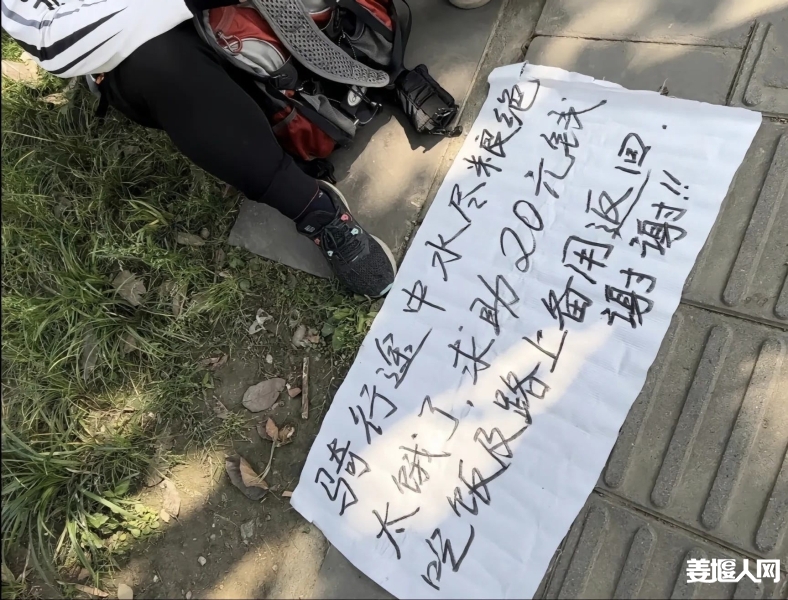 骑行途中水尽粮绝
太饿了.求助20元钱
吃饭及路上备用返回.
谢谢!!
姜堰人网